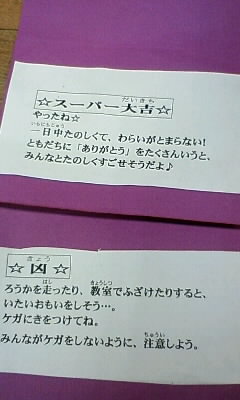 だいきち
☆スーパー大吉☆
やったね☆
いちにちじゅう
一日中たのしくて、わらいがとまらない!
ともだちに「ありがとう」をたくさんいうと、
みんなとたのしくすごせそうだよ♪
きょう
☆凶☆
はし きょうしつ
ろうかを走ったり、教室でふざけたりすると、
いたいおもいをしそう…。
ケガにきをつけてね。
ちゅうい
みんながケガをしないように、注意しよう。